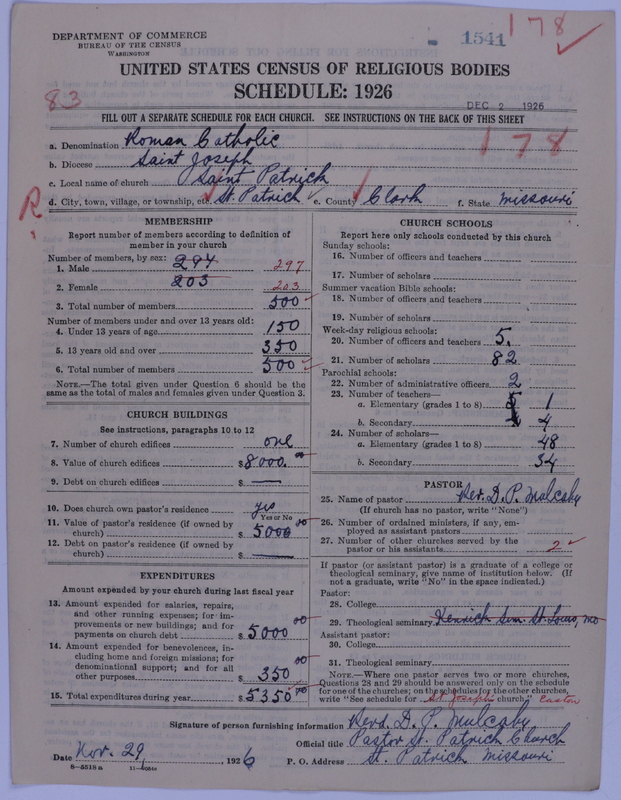 DEPARTMENT OF COMMERCE
BUREAU OF THE CENSUS
WASHINGTON
1541
178
UNITED STATES CENSUS OF RELIGIOUS BODIES
SCHEDULE: 1926
83
DEC 2 1926
FILL OUT A SEPARATE SCHEDULE FOR EACH CHURCH. SEE INSTRUCTIONS ON THE BACK OF THIS SHEET
178
a. Denomination Roman Catholic
b. Diocese Saint Joseph
c. Local name of church Saint Patrick
d. City, town, village, or township, etc. St. Patrick e. County Clark f. State Missouri
R
MEMBERSHIP
Report number of members according to definition of member in your church
Number of members, by sex:
1. Male 297 297
2. Female 203 203
3. Total number of members 500
Number of members under and over 13 years old:
4. Under 13 years of age 150
5. 13 years old and over 350
6. Total number of members 500
NOTE.—The total given under Question 6 should be the same as the total of males and females given under Question 3.
CHURCH BUILDINGS
See instructions, paragraphs 10 to 12
7. Number of church edifices one
8. Value of church edifices $8000.00
9. Debt on church edifices $ —
10. Does church own pastor's residence yes
Yes or No
11. Value of pastor's residence (if owned by church) $ 5000 00
12. Debt on pastor's residence (if owned by church) $ —
EXPENDITURES
Amount expended by your church during last fiscal year
13. Amount expended for salaries, repairs, and other running expenses; for improvements or new buildings; and for payments on church debt $5000 00
14. Amount expended for benevolences, including home and foreign missions; for denominational support; and for all other purposes $ 350 00
15. Total expenditures during year $5350 00
CHURCH SCHOOLS
Report here only schools conducted by this church
Sunday schools:
16. Number of officers and teachers
17. Number of scholars
Summer vacation Bible schools:
18. Number of officers and teachers
19. Number of scholars
Week-day religious schools:
20. Number of officers and teachers 5.
21. Number of scholars 82
Parochial schools:
22. Number of administrative officers 2
23. Number of teachers—
a. Elementary (grades 1 to 8) 1
b. Secondary 4
24. Number of scholars—
a. Elementary (grades 1 to 8) 48
b. Secondary 34
PASTOR
25. Name of pastor Rev. D. P. Mulcahy
(If church has no pastor, write "None")
26. Number of ordained ministers, if any, employed as assistant pastors
27. Number of other churches served by the pastor or his assistants 2
If pastor (or assistant pastor) is a graduate of a college or theological seminary, give name of institution below. (If not a graduate, write "No" in the space indicated.)
Pastor:
28. College
29. Theological seminary Kenrick Sem. St. Louis, Mo
Assistant pastor:
30. College
31. Theological seminary
NOTE.—Where one pastor serves two or more churches, Questions 28 and 29 should be answered only on the schedule for one of the churches; on the schedules for the other churches, write "See schedule for St Joseph's church." Easton
Signature of person furnishing information Revd. D. P. Mulcahy
Official title Pastor St. Patrick Church
Date Nov. 29, 1926 P. O. Address St. Patrick Missouri
8—5518a